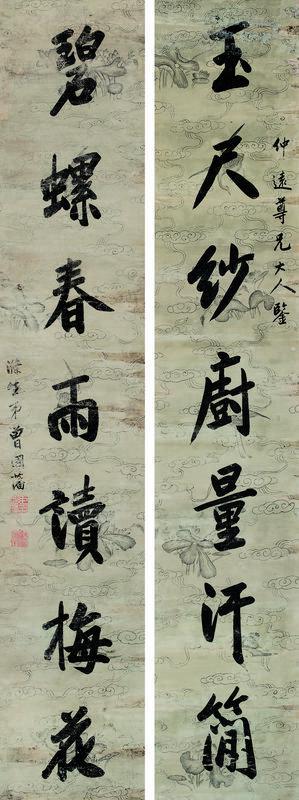 仲遠尊兄大人鑒
玉尺紗廚量汗簡
碧螺春雨讀梅花
滌生弟曾國藩